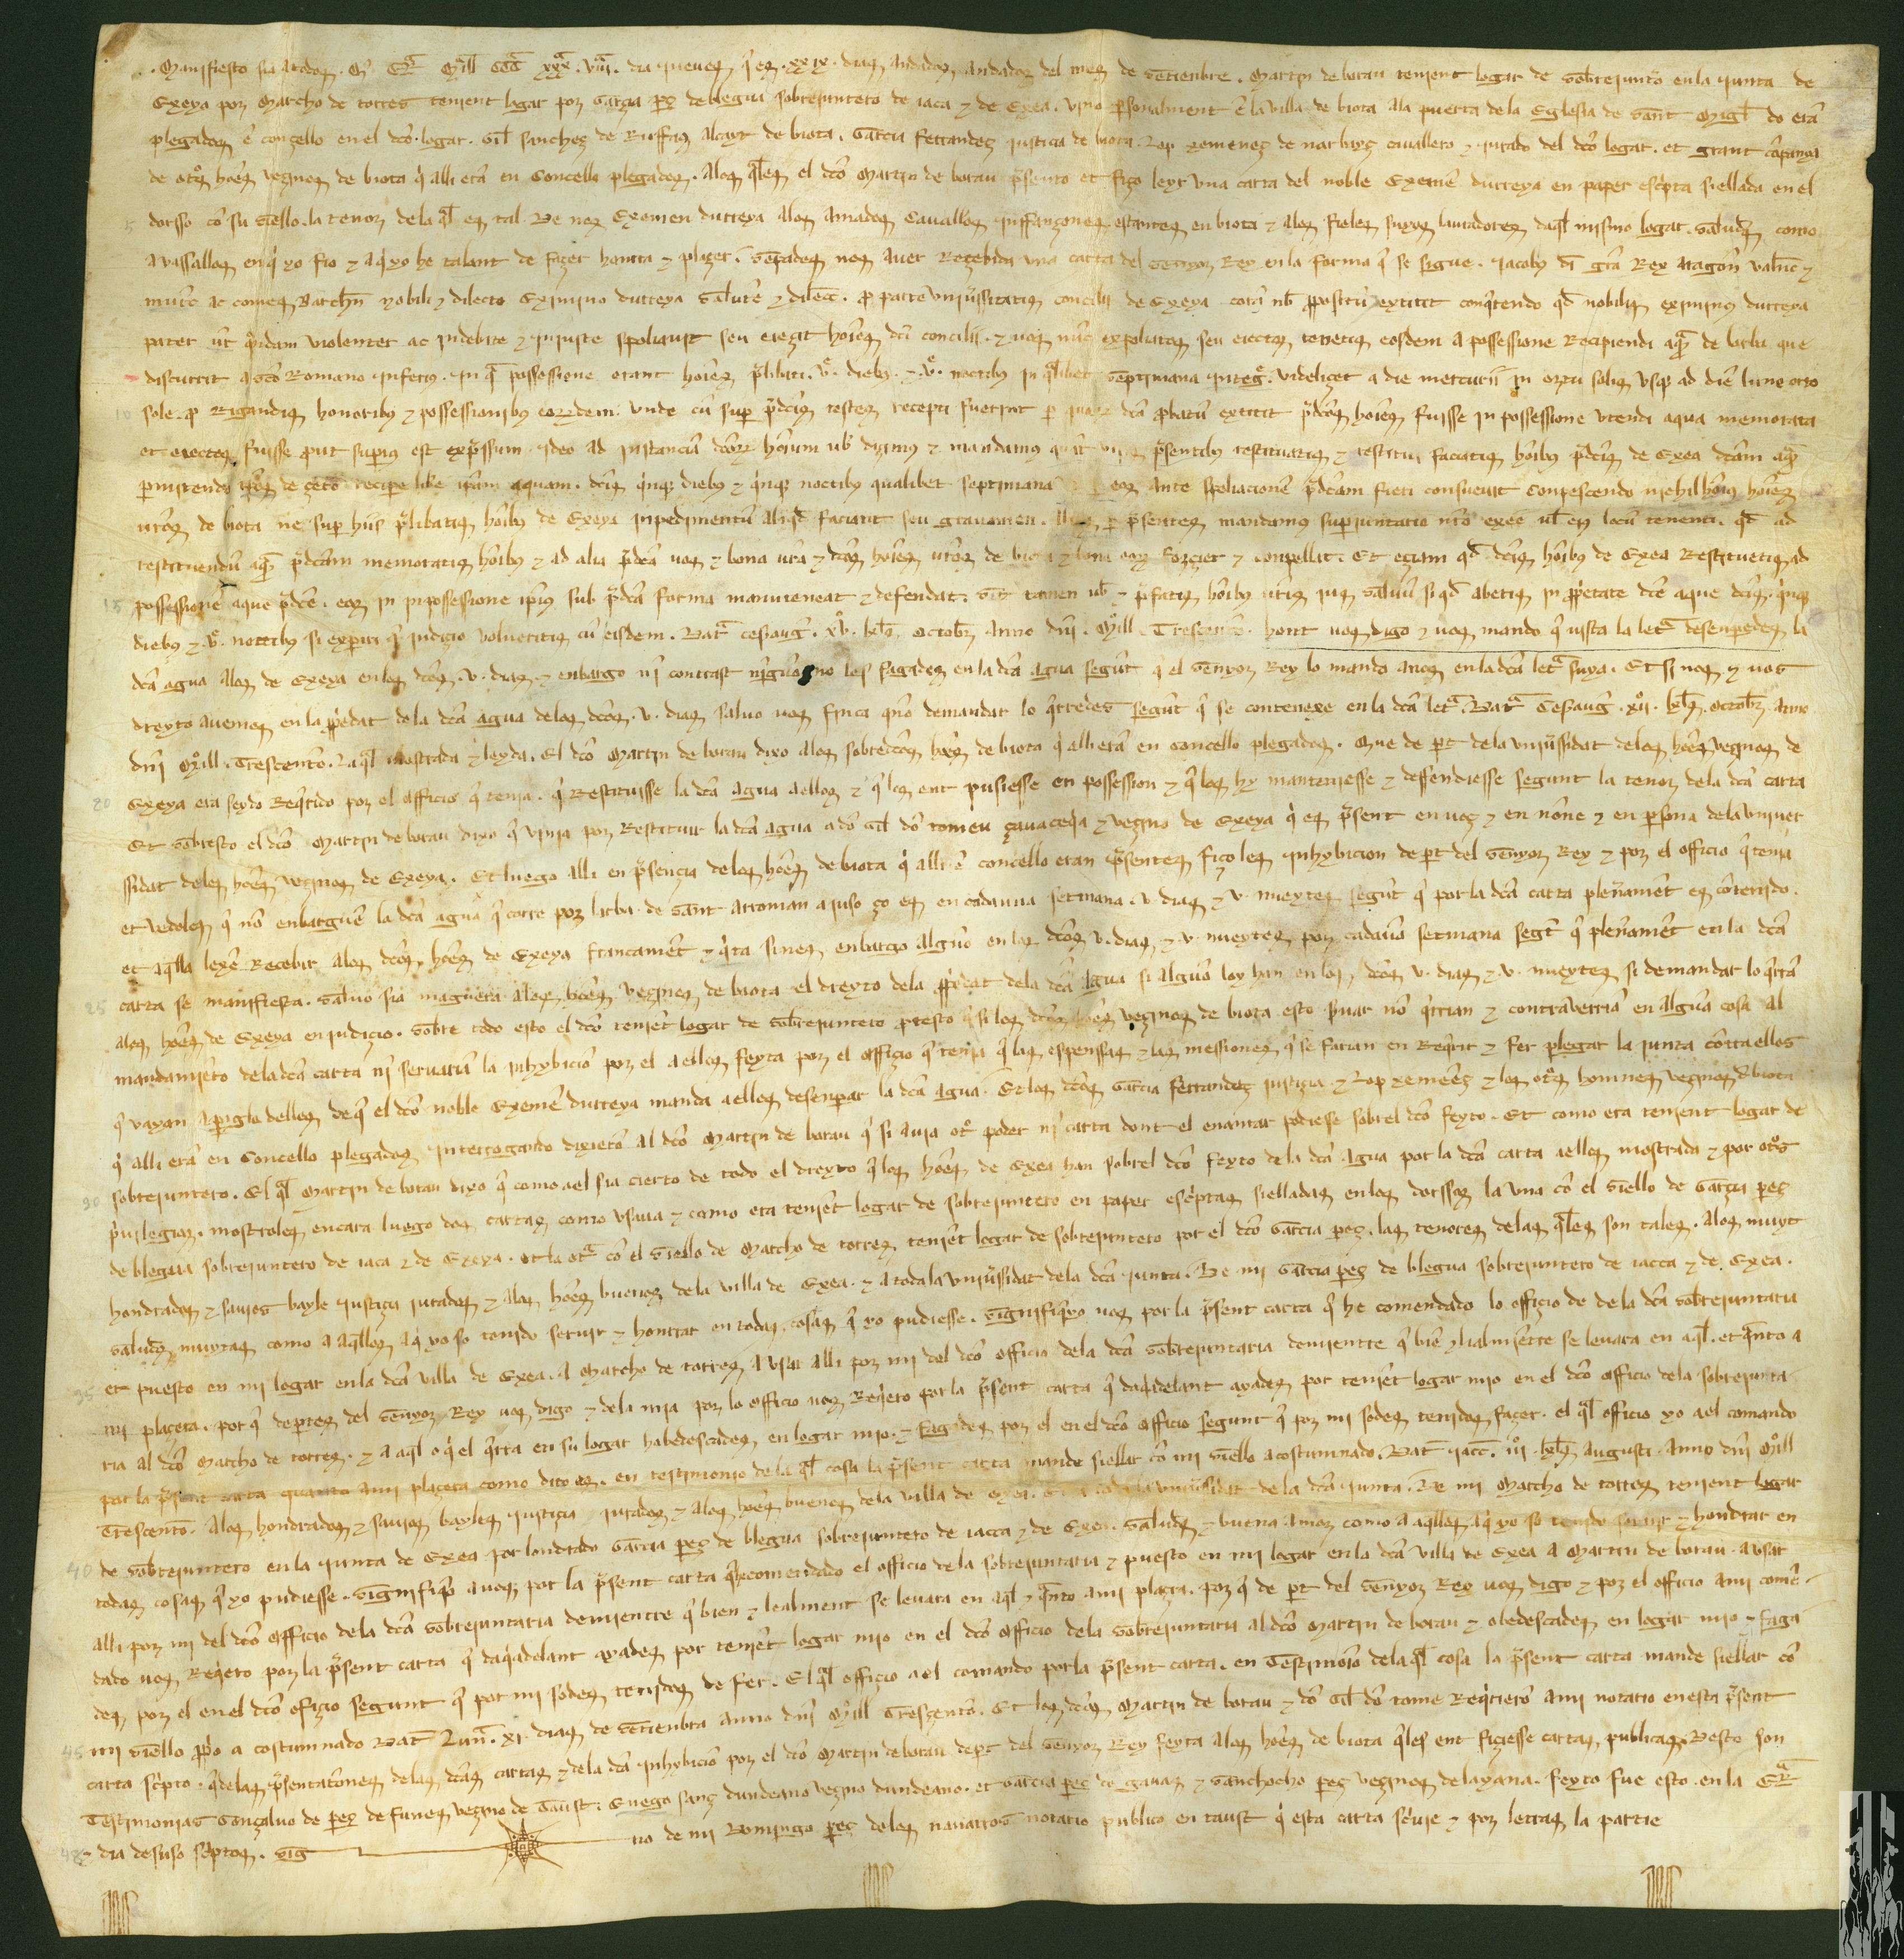 Manifiesto sia a todos. Era Mill CCC xxx viii. dia jueves q̃ es xxix. dias andados andados del mes de setienbre. Martin de borau tenient logar de sobrejuntero en la junta de
Exeya por Marcho de torres tenient logar por Garçia peç de blegua sobrejuntero de iaca & de Exea. vino personalment ẽ la villa de biota ala puerta dela Eglesia de sant Migl̃ do erã
plegados ẽ conçello en el dc̃o logar. Gil sanches de alcayt de biota. Garcia ferrandeç justicia de biota. Lop xemeneç de cavallero & jurado del dc̃o logar. et grant cõpanya
de otros hoẽs veçinos de biota q̃ alli erã en Concello plegados. Alos q̃les el dc̃o Martin de borau p̃sento et fiço leyr una carta del noble Exemẽ durreya en paper escripta siellada en el
dorsso cõ su siello. la tenor dela q̃l es tal. De nos Exemen durreya alos amados Cavalleros inffançones estantes en biota & alos fieles suyos lauradores daq̃l mismo logar. salud̃s como
a vassallos en q̃ yo fio & a q̃ yo he talant de façer honrra & plaçer. Sepades nos aver reçebida una carta del senyor Rey en la forma q̃ se sigue. Jacob9 di gr̃a Rex Aragoñ valnc̃ &
murc̃ ac comes Barchñ nobili & dilecto Eximino durreya salutẽ & dilecc̃. p parte universitatis concilii de Exeya corã nb̃ ppositũ extitit conq̃rendo qd̃ nobilis eximin9 durreya
pater vr̃ q̃dam violenter ac indebite & injuste spoliavit seu eiecit hoĩes dc̃i concilii. & vos nũc expoliatos seu eiectos tenetis eosdem a possessione recipiendi aq̃m de lurba que
discurrit a sc̃o Romano inferius. in q̃ possessione erant hoĩes p̃libati. v. dieb9 & v. noctib9 in q̃libet septimana integ̃. videliçet a die mercurii in ortu solis usq̃ ad diẽ lune orto
sole. p rigandis honorib9 & possessionib9 eorumdem. unde cũ sup p̃dc̃is testes recepti fuerint p quorum dc̃a pbatũ extitit p̃dc̃os hoĩes fuisse in possessione utendi aqua memorata
et eiectos fuisse put superi9 est exp̃ssum. ideo ad instanciã dc̃orum hoĩum vob̃ dicim9 & mandam9 p̃sentib9 restituatis & restitui faciatis hoĩb9 p̃dc̃is de Exea dc̃am aq̃m
pmitendo ip̃os de çeto recipe libe ip̃am aquam. dc̃is q̃nq̃ dieb9 & q̃nq̃ noctib9 qualibet septimana eos ante spoliacionẽ p̃dc̃am fieri consuevit conpescendo nichillomin9 hoĩes
vr̃os de biota ne sup hiis p̃libatis hoĩb9 de Exeya inpedimentũ aliq̃d faciant seu gravamen. p p̃sentes mandam9 supjuntario nr̃o exee vl̃ ei9 locũ tenenti. qd̃ ad
restituendũ aq̃m p̃dc̃am memoratis hoĩb9 & ad alia p̃dc̃a vos & bona vr̃a & dc̃os hoĩes vr̃os de biota & bona eorum forçiet & conpellat. Et eciam qd̃ dc̃is hoĩb9 de Exea restituetis ad
possessionẽ aque p̃dc̃e. eos in possessione ipi9 sub p̃dc̃a forma manuteneat & defendat. sit tamen vob̃ & p̃fatis hoĩb9 vr̃is ius salvũ si qd̃ abetis in ppietate dc̃e aque dc̃is q̃nq̃
dieb9 & v. noctib9 si expiri q̃ in judicio volueritis cũ eisdem. Dat̃ cesaug̃. xv. kl̃s Octobr̃ anno dñi Mill. Trescento. hont vos digo & vos mando q̃ vista la let̃a desenpedeq̃ la
dc̃a agua alos de Exeya en los dc̃os v. dias & enbargo nĩ contrast ninguno no les fagades en la dc̃a agua segũt q̃ el senyor Rey lo manda anos en la dc̃a let̃a suya. Et si nos & vos
dreyto avemos en la ppiedat dela dc̃a agua delos dc̃os v. dias salvo vos finca q̃nõ demandar lo q̃rredes segũt q̃ se contenexe en la dc̃a let̃a. Dat̃ Cesaug̃. xii. kl̃s Octobr̃ anno
dñi Mill. Trescento. La q̃l mostrada & leyda. El dc̃o Martin de borau dixo alos sobredc̃os hoẽs de biota q̃ alli erã en concello plegados. Que de pt dela universidat delos hoẽs veçinos de
Exeya era seydo req̃rido por el officio q̃ tenia. q̃ restituisse la dc̃a agua aellos & q̃ los ent pusiesse en possession & q̃ los hy manteniesse & deffendiesse segunt la tenor dela dc̃a carta
Et sobresto el dc̃o Martin de borau dixo q̃ vinia por restituir la dc̃a agua a dõ Gil dõ tomeu çavaceq̃a & veçino de Exeya q̃ es p̃sent en voç & en nõne & en persona dela univer
sidat delos hoẽs veçinos de Exeya. Et luego alli en p̃sençia delos hoẽs de biota q̃ alli ẽ concello eran p̃sentes fiço les inhybicion de pt del senyor Rey & por el officio q̃ tenia
et vedoles q̃ nõ enbarguẽ la dc̃a agua q̃ corre por lurba de sant arroman a juso ço es en cadauna setmana. v. dias & v. nueytes segũt q̃ por la dc̃a carta plenamẽt es cõtenido.
et aq̃lla lexẽ recebir alos dc̃os hoẽs de Exeya francamẽt & q̃ta sines enbargo alguno en los dc̃os v. dias & v. nueytes por cadauna setmana segt̃ q̃ plenamẽt en la dc̃a
carta se manifiesta. Salvo sia maguera alos hoẽs veçinos de biota el dreyto dela ppiedat dela dc̃a agua si alguno loy han en los dc̃os v. dias & v. nueytes si demandar lo q̃rrã
alos hoẽs de Exeya en judiçio. Sobre todo esto el dc̃o tenient logar de sobrejuntero ptesto q̃ si los dc̃os hoẽs veçinos de biota esto p̃uar nõ q̃rrian & contraverriã en alguna cosa al
mandamiẽto dela dc̃a carta nĩ servariã la inhybiciõ por el aellos feyta por el officio q̃ tenia q̃ las espensas & las messiones q̃ se farian en req̃rir & fer plegar la junta cõtra ellos
q̃ vayan a periglo dellos de q̃ el dc̃o noble Exemẽ durreya manda aellos desenparar la dc̃a agua. Et los dc̃os Garcia ferrandeç justiçia & Lop xemeneç & los otros homnes veçinos de biota
q̃ alli erã en Concello plegados interrogando dixierõ al dc̃o Martin de borau q̃ si avia otr̃o poder nĩ carta dont el enantar podiesse sobrel dc̃o feyto. Et como era tenient logar de
sobrejuntero. El q̃l Martin de borau dixo q̃ como ael sia cierto de todo el dreyto q̃ los hoẽs de Exea han sobrel dc̃o feyto dela dc̃a agua por la dc̃a carta aellos mostrada & por otros
privilegios. mostroles encara luego dos cartas como usava & como era tenient logar de sobrejuntero en paper escriptas sielladas en los dorssos la una cõ el siello de Garçia peç
de blegua sobrejuntero de iaca & de Exeya. et la otr̃a cõ el siello de Marcho de torres tenient logar de sobrejuntero por el dc̃o Garcia peç. las tenores delas q̃les son tales. Alos muyt
hondrados & savios bayle justiçia jurados & alos hoẽs buenos dela villa de Exea. & a toda la universidat dela dc̃a junta. De mi Garcia peç de blegua sobrejuntero de iacca & de Exea.
salud̃s muytas como a aq̃llos a q̃ yo so tenido servir & honrrar en todas cosas q̃ yo pudiesse. Significo vos por la p̃sent carta q̃ he comendado lo officio de dela dc̃a sobrejuntaria
et puesto en mi logar en la dc̃a villa de Exea. a Marcho de torres a usar alli por mi del dc̃o officio dela dc̃a sobrejuntaria demientre q̃ biẽ & lialmiẽtre se levara en aq̃l. et q̃nto a
mi plaçera. por q̃ departes del senyor Rey vos digo & dela mia por lo officio vos req̃ero por la p̃sent carta q̃ daq̃delant ayades por tenient logar mio en el dc̃o officio dela sobrejunta
ria al dc̃o Marcho de torres. & a aq̃l o q̃ el q̃rra en su logar hobedescades en logar mio. & fagades por el en el dc̃o officio segunt q̃ por mi sodes tenidos façer. el q̃l officio yo ael comando
por la p̃sent carta quanto ami plaçera como dito es. en testimonio dela q̃l cosa la p̃sent carta mande siellar cõ mi siello acostumnado. Dat̃ iacc̃. iii. kl̃s augusti. Anno dñi Mill
Trescento. Alos hondrados & savios bayles justiçia jurados & alos hoẽs buenos dela villa de Exea. & a toda la universidat dela dc̃a junta. De mi Marcho de torres tenient logar
de sobrejuntero en la junta de Exea por londrado Garcia peç de blegua sobrejuntero de iacca & de Exea. salud̃s & buena amor como a aq̃llos a q̃ yo so tenido servir & hondrar en
todas cosas q̃ yo pudiesse. Significo a vos por la p̃sent carta q̃ comendado el officio dela sobrejuntaria & puesto en mi logar en la dc̃a villa de Exea a Martin de borau. a usar
alli por mi del dc̃o officio dela dc̃a sobrejuntaria demientre q̃ bien & lealment se levara en aq̃l & q̃nto ami plaçra. por q̃ de pt del senyor Rey vos digo & por el officio ami comẽ
dado vos req̃ero por la p̃sent carta q̃ daq̃adelant ayades por tenient logar mio en el dc̃o officio dela sobrejuntaria al dc̃o Martin de borau & obedescades en logar mio & faga
des por el en el dc̃o ofiçio segunt q̃ por mi sodes tenidos de fer. El q̃l officio ael comando por la p̃sent carta. en Testimonio dela q̃l cosa la p̃sent carta mande siellar cõ
mi siello ppio a costumnado Dat̃ Lun̄. xi. dias de setienbra anno dñi Mill Tresçento. Et los dc̃os Martin de borau & dõ Gil dõ tome req̃rierõ ami notario en esta p̃sent
carta sc̃pto. q̃ delas p̃sentationes delas dc̃as cartas & dela dc̃a inhybiciõ por el dc̃o Martin de borau de pt del senyor Rey feyta alos hoẽs de biota q̃les ent fiçiesse cartas publicas. Desto son
Testimonias Gonçalvo de peç de funes veçino de Saust. Enego sanç dundeano veçino dundeano. et Garcia peç de gavas & Sanchocho peç veçinos de layana. feyto fue esto en la Era
& dia desuso scriptos. Sig no de mi Domingo peç delos navarros notario publico en taust q̃ esta carta scrivie & por letras la partie